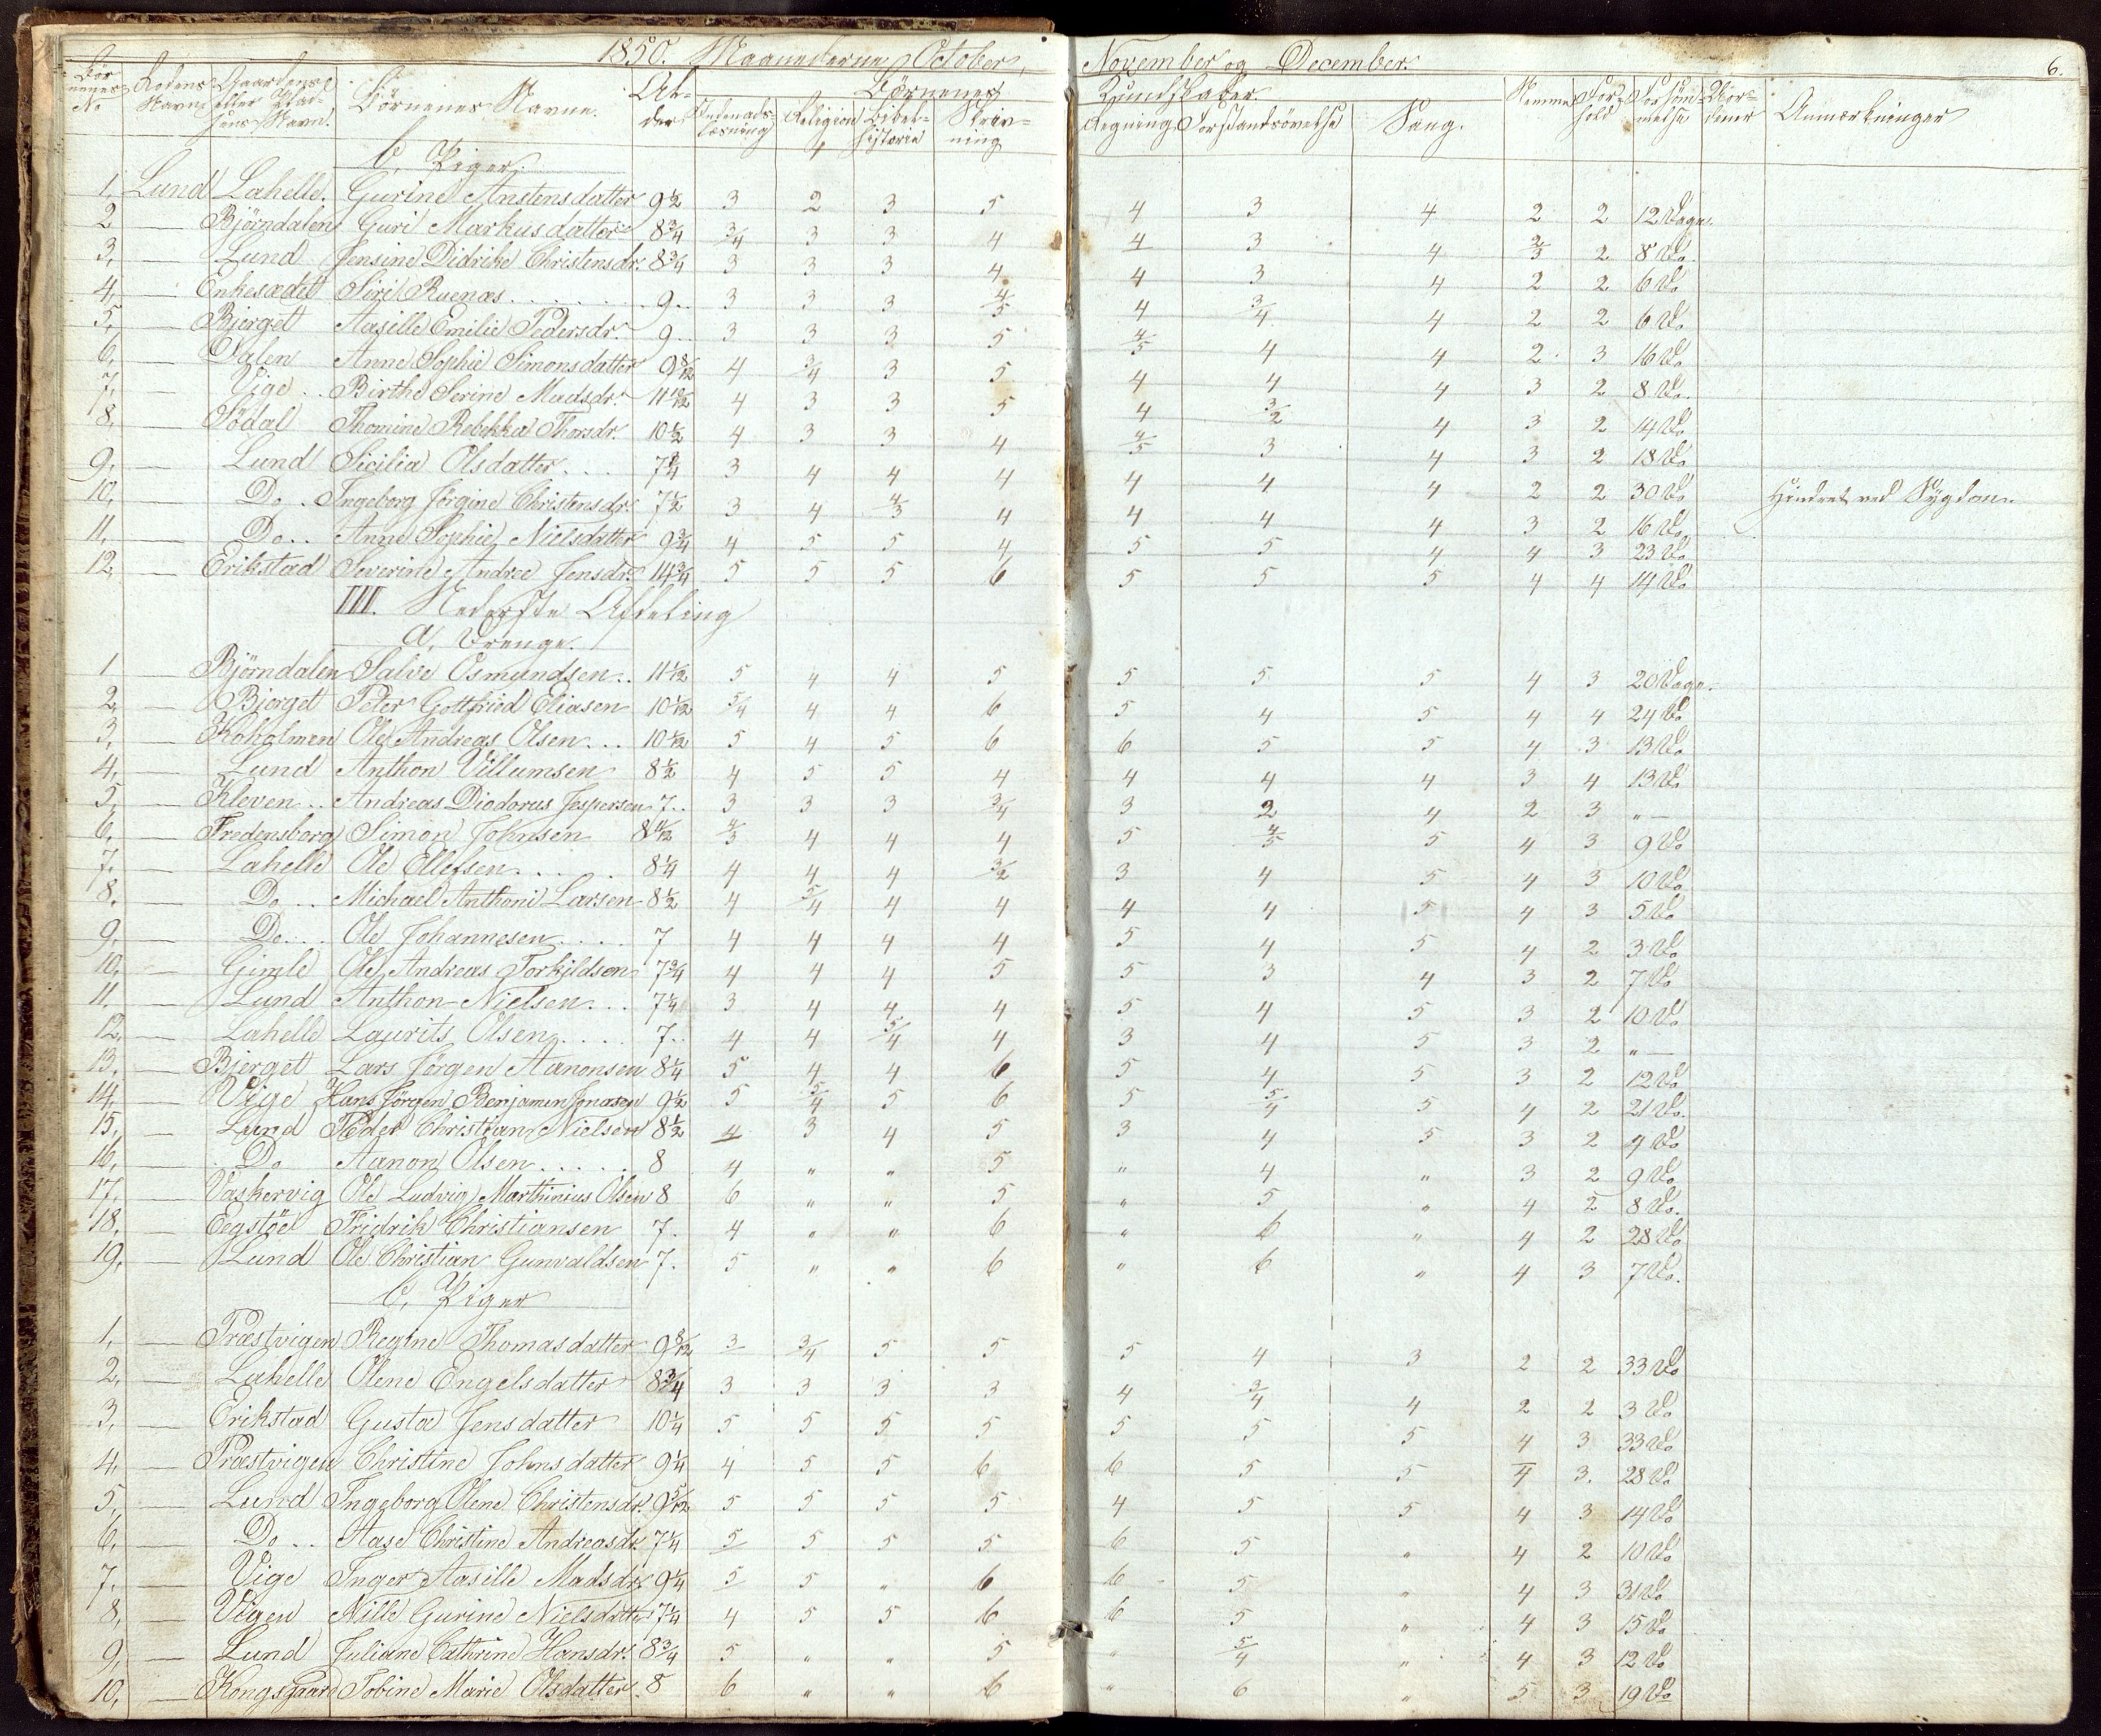 1850. Maanederne October, November og December. 6.
Børnenes No Rodens Navn Gaardens eller Pladsens Navn. Børnenes Navne. Alder Børnenes Kundskaber. Nemme Forhold Forsømmelse Anmærkninger
Indenadslæsning Religion Bibelhistorie Skrivning Regning Forstandsøvelse Sang.
b, Piger.
1, Lund Lahelle. Gurine Anstensdatter 9 1/2 3 2 3 5 4 3 4 2 2 12 Dage.
2 — Bjørndalen Guri Markusdatter 8 3/4 3/4 3 3 4 4 3 4 2/3 2 8 Do.
3, — Lund Jensine Didrike Christensdr. 8 3/4 3 3 3 4 4 3 4 2 2 6 Do
4, — Enkesædet Siri Ruenæs 9 3 3 3 4/5 4 3/4 4 2 2 6 Do
5, — Bjerget Aasille Emilie Pedersdr. 9 3 3 3 5 4/5 4 4 2 3 16 Do
6, — Dalen Anne Sophie Simonsdatter 9 8/12 4 3/4 3 5 4 4 4 3 2 8 Do.
7, — Vige Birthe Serine Madsdr. 11 10/12 4 3 3 5 4 3/2 4 3 2 14 Do
8, — Södal Thomine Rebekka Thorsdr. 10 1/2 4 3 3 4 4/5 3 4 3 2 18 Do
9, — Lund Sicilia Olsdatter 7 3/4 3 4 4 4 4 4 4 2 2 30 Do Hindret ved Sygdom.
10, — Do Ingeborg Jörgine Christensdr. 7 1/2 3 4 4/3 4 4 4 4 3 2 16 Do
11, — Do Anne Sophie Nielsdatter 9 3/4 4 5 5 4 5 5 4 4 3 23 Do
12, — Erikstad Severine Andrea Jensdr. 14 3/4 5 5 5 6 5 5 5 4 4 14 Do
III. Nederste Afdeling
a, Drenge.
1 — Bjørndalen Salve Osmundsen 11 1/12 5 4 4 5 5 5 5 4 3 20 Dage.
2, — Bjerget Peter Gottfried Eliasen 10 1/12 5/4 4 4 6 5 4 5 4 4 24 Do
3, — Koholmen Ole Andreas Olsen 10 1/12 5 4 5 6 6 5 5 4 3 13 Do
4, — Lund Anthon Villumsen 8 1/2 4 5 5 4 4 4 4 3 4 13 Do
5, — Kleven Andreas Diodorus Jespersen 7 3 3 3 3/4 3 2 4 2 3 „ —
6, — Fredensborg Simon Johnsen 8 11/12 4/3 4 4 4 5 4/5 5 4 3 9 Do
7, — Lahelle Ole Ellefsen 8 1/4 4 4 4 3/2 3 4 5 4 3 10 Do
8, — Do Michael Anthoni Larsen 8 1/2 4 5/4 4 4 4 4 5 4 3 5 Do
9, — Do Ole Johannesen 7 4 4 4 4 5 4 5 4 2 3 Do
10, — Gimle Ole Andreas Torkildsen 7 3/4 4 4 4 5 5 3 4 3 2 7 Do
11, — Lund Anthon Nielsen 7 1/4 3 4 4 4 5 4 5 3 2 10 Do
12, — Lahelle Laurits Olsen 7 4 4 5/4 4 3 4 5 3 2 „ —
13, — Bjerget Lars Jörgen Aanonsen 8 1/4 5 4 4 6 5 4 5 3 2 12 Do
14, — Vige Hans Jörgen Benjamin Jonasen 9 1/2 5 5/4 5 6 5 5/4 5 4 2 21 Do.
15, — Lund Peder Christian Nielsen 8 1/2 4 3 4 5 3 4 5 3 2 9 Do
16, — Do Aanon Olsen 8 4 „ „ 5 „ 4 „ 3 2 9 Do
17, — Vaskervig Ole Ludvig Marthinius Olsen 8 6 „ „ 5 „ 5 „ 4 2 8 Do.
18, — Eegstöe Fridrik Christiansen 7. 4 „ „ 6 „ 6 „ 4 2 28 Do
19, — Lund Ole Christian Gunvaldsen 7. 5 „ „ 6 „ 6 „ 4 3 7 Do.
b, Piger
1, — Præstvigen Regine Thomasdatter 9 3/12 3 3/4 5 5 5 4 3 2 2 33 Do
2, — Lahelle Olene Engelsdatter 8 3/4 3 3 3 3 4 3/4 4 2 2 3 Do
3, — Erikstad Gusta Jensdatter 10 1/4 5 5 5 5 5 5 5 4 3 33 Do
4, — Præstvigen Christine Johnsdatter 9 1/4 4 5 5 6 6 5 5 4 3. 28 Do
5, — Lund Ingeborg Olene Christensdr. 9 5/12 5 5 5 5 4 5 5 4 3 14 Do
6, — Do Aase Christine Andreasdr. 7 1/4 5 5 5 5 6 5 „ 4 2 10 Do
7, — Vige Inger Aasille Madsdr. 9 1/4 5 5 „ 6 6 5 „ 4 3 31 Do
8, — Vigen Nille Gurine Nielsdatter 7 1/4 4 5 5 6 6 5 „ 4 3 15 Do
9, — Lund Juliane Cathrine Hansdr. 8 3/4 5 „ „ 5 „ 5/4 „ 4 3 12 Do
10, — Kongsgaard Tobine Marie Olsdatter. 8 6 „ „ 6 „ 6 „ 5 3 19 Do